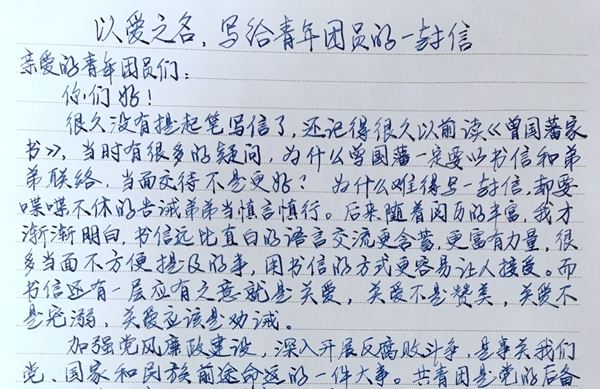 以爱之名,写给青年团员的一封信
亲爱的青年团员们:
你们好!
很久没有提起笔写信了,还记得很久以前读《曾国藩家
书》,当时有很多的疑问,为什么曾国藩一定要以书信和弟
弟联络,当面交待不是更好?为什么难得写一封信,却要
喋喋不休的告诫弟弟当慎言慎行。后来随着阅历的丰富,我才
渐渐明白,书信远比直白的语言交流更含蓄,更富有力量,很
多当面不方便提及的事,用书信的方式更容易让人接受。而
书信还有一层应有之意就是关爱,关爱不是赞美,关爱不
是宠溺,关爱应该是劝诫。
加强党风廉政建设,深入开展反腐败斗争,是事关我们
党、国家和民族前途命运的一件大事。共青团是党的后备